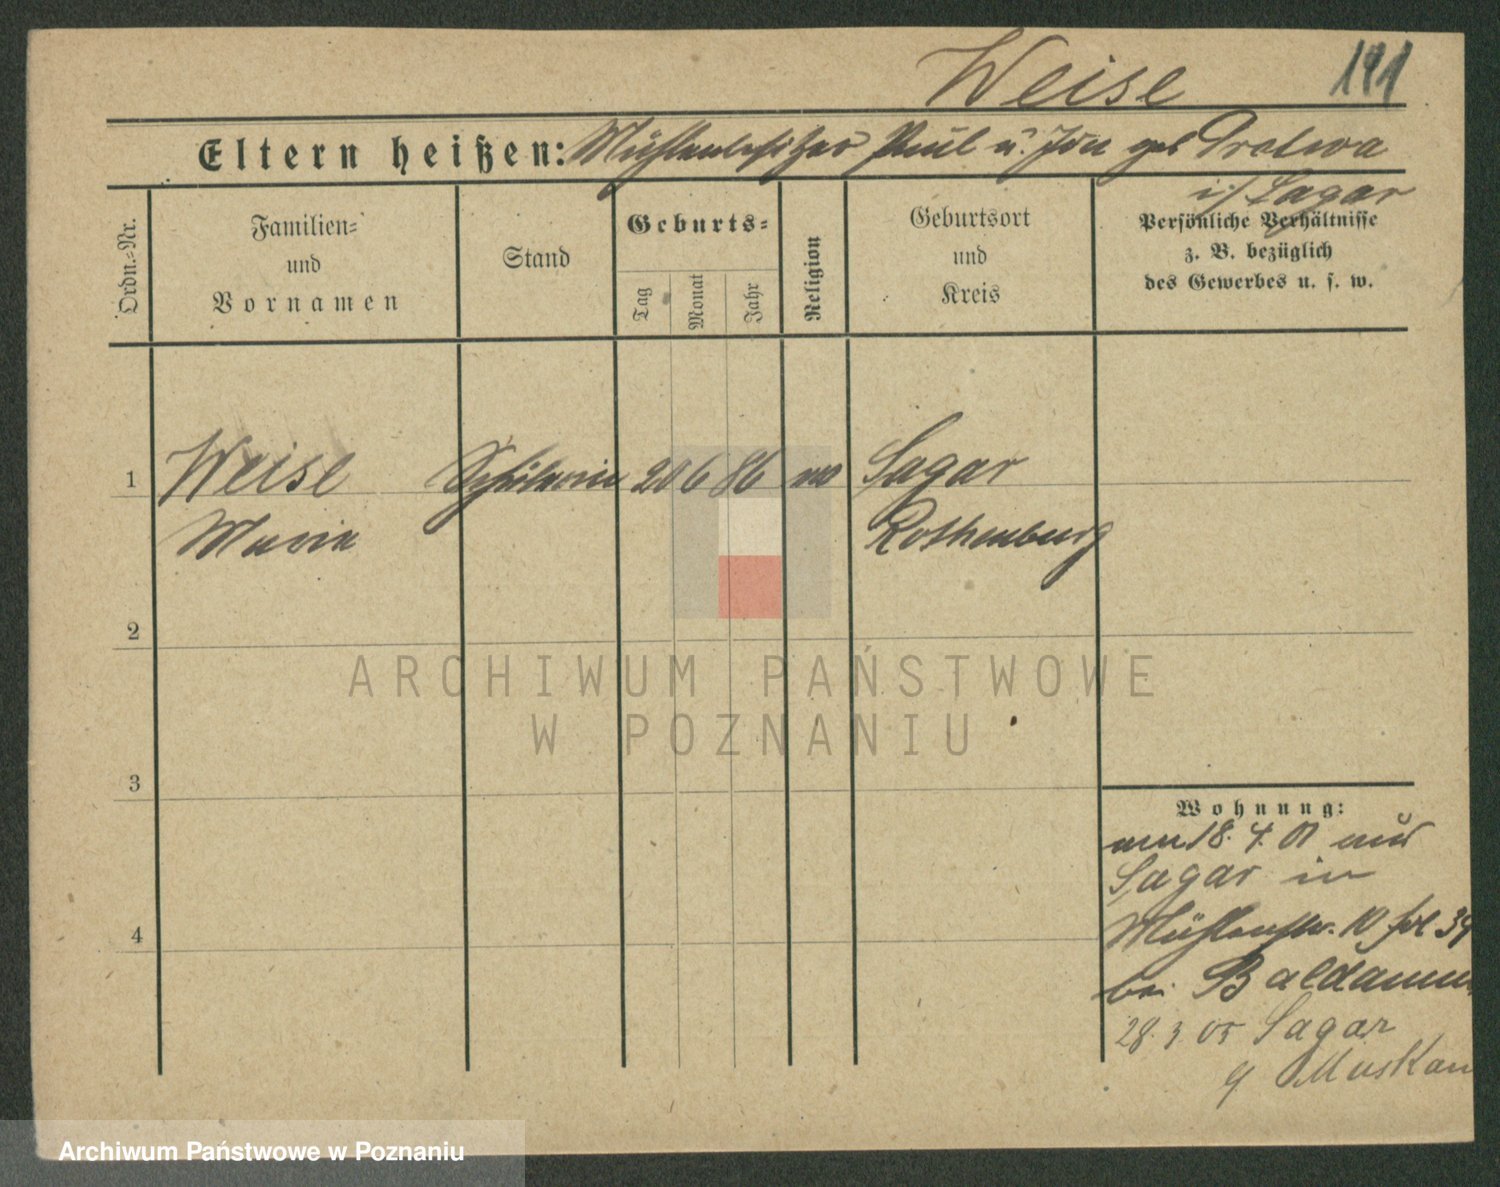 Weise 191
Eltern heißen: Mühlenbesitzer Paul u. Ida geb Protwa
i/ Sagar
Ordn.-Nr.
Familien-
und
Vornamen
Stand
Geburts-
Tag
Monat
Jahr
Religion
Geburtsort
und
Kreis
Persönliche Verhältnisse
z. B. bezüglich
des Gewerbes u. s. w.
1 Weise Schülerin 20 6 86 Sagar
Maria Rothenburg
2
3
4
ARCHIWUM PAŃSTWOWE
W POZNANIU
Wohnung:
18. 4. 01 aus
Sagar in
Mühlenstr. 10
bei Baldamus
28. 3 05 Sagar
Muskau
Archiwum Państwowe w Poznaniu